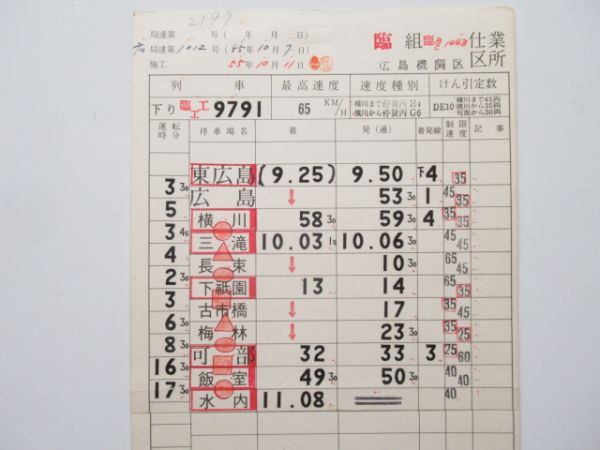 2199
局達第 号( 年 月 日)
局達第1012号(55年10月7日)
施工 55年10月11日
臨 組 臨 仕業
広島機関区 区所
列 車 最高速度 速度種別 けん引定数
下り 臨工工9791 65 KM/H 横川まで停貨丙 横川から停貨丙G6 DE10 横川まで45両 横川から35両 可部から30両
運転時分 停車場名 着 発(通) 着発線 制限速度 記事
東広島 (9.25) 9.50 下4 35
3 30
広島 ↓ 53 30 1 45 35
5
横川 58 30 59 30 4 35 35
3 45
三滝 10.03 15 10.06 30 45 45
4
長束 ↓ 10 30 65 45
2 30
下祇園 13 14 65
3
古市橋 ↓ 17 35 45
6 30
梅林 ↓ 23 30 35 25
8 30
可部 32 33 3 25 60
16 30
飯室 49 30 50 30 40 40
17 30
水内 11.08 40